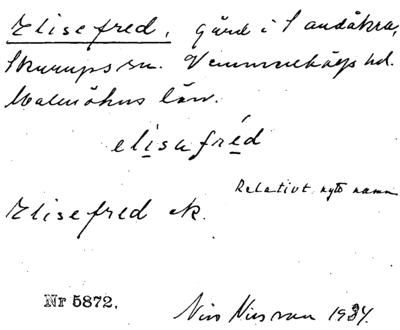 Elisefred, gård i Sandåkra,
Skurups sn. Vemmenhögs hd.
Malmöhus län.
elisafréd
Relativt nytt namn
Elisefred ek.
Nr 5872.
Nils Nilsson 1934.